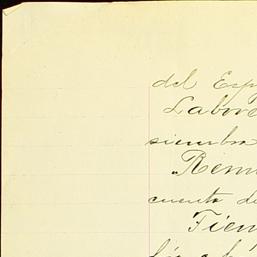 del Esp
Labor
siembra
"Rem
cuenta de
Tien